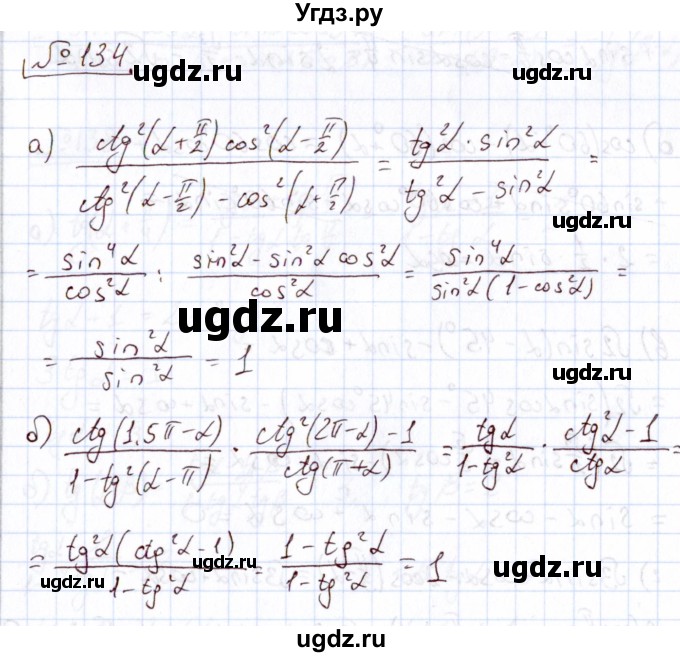 Угдз.ру
№ 134
ugdz.ru ugdz.ru
а) ctg²(α+π/2) cos²(α-π/2) / ctg²(α-π/2) - cos²(α+π/2) = tg²α · sin²α / tg²α - sin²α =
ugdz.ru
= sin⁴α / cos²α : sin²α - sin²α cos²α / cos²α = sin⁴α / sin²α (1 - cos²α) =
ugdz.ru
= sin²α / sin²α = 1
ugdz.ru
б) ctg(1,5π-α) / 1 - tg²(α-π) · ctg²(2π-α) - 1 / ctg(π+α) = tgα / 1-tg²α · ctg²α - 1 / ctgα =
ugdz.ru
= tg²α (ctg²α - 1) / 1 - tg²α = 1 - tg²α / 1 - tg²α = 1
ugdz.ru ugdz.ru ugdz.ru
ugdz.ru